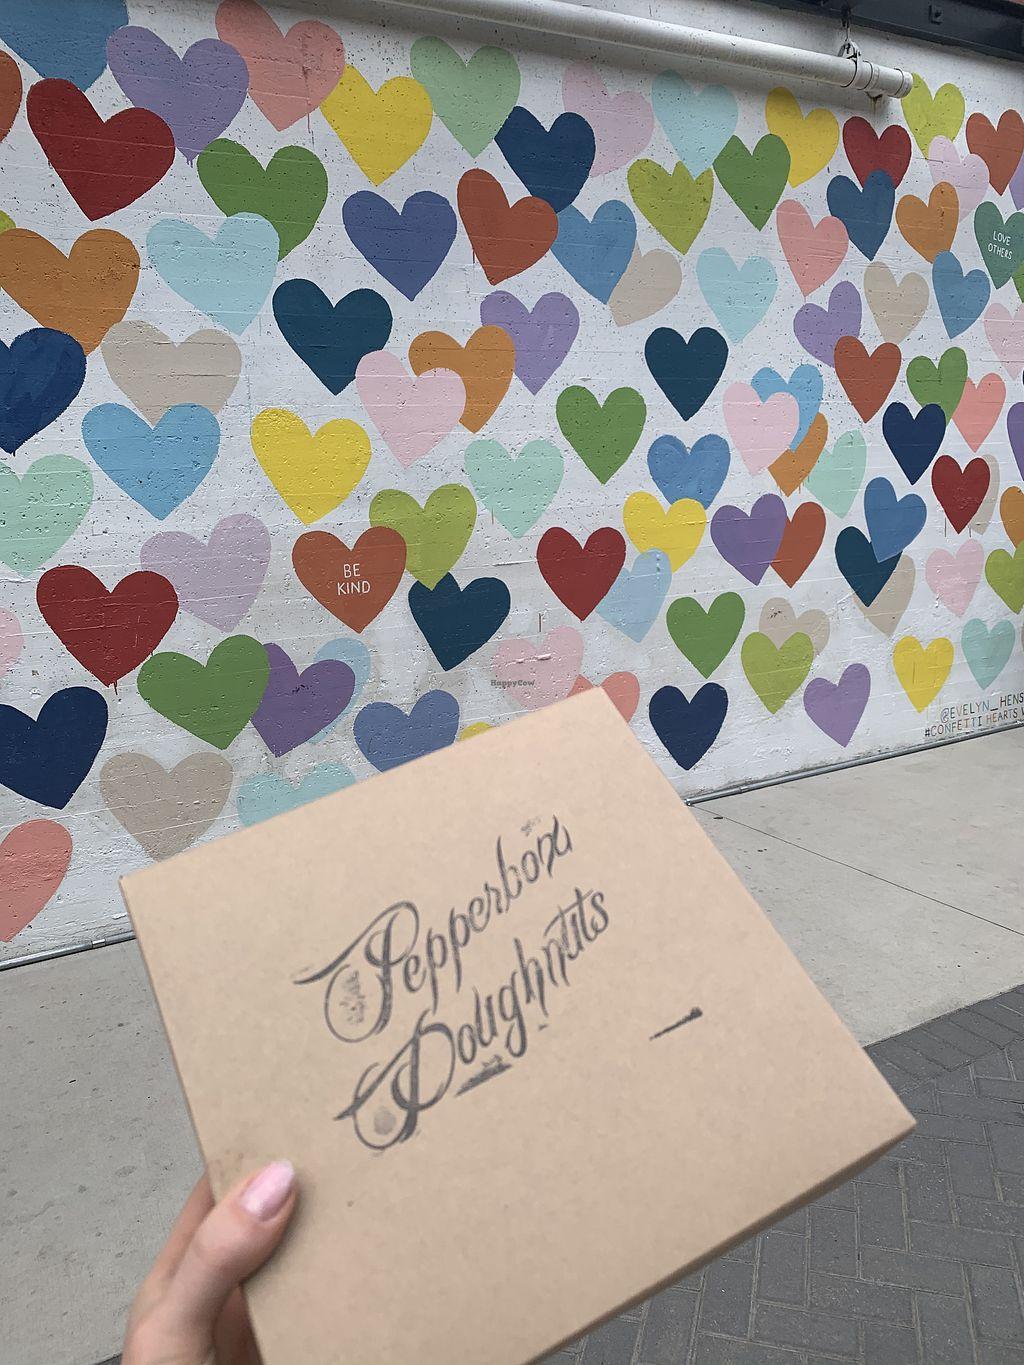 LOVE
OTHERS
BE
KIND
HappyCow
@EVELYN_HENS
#CONFETTI HEARTS
Pepperbox
Doughnuts